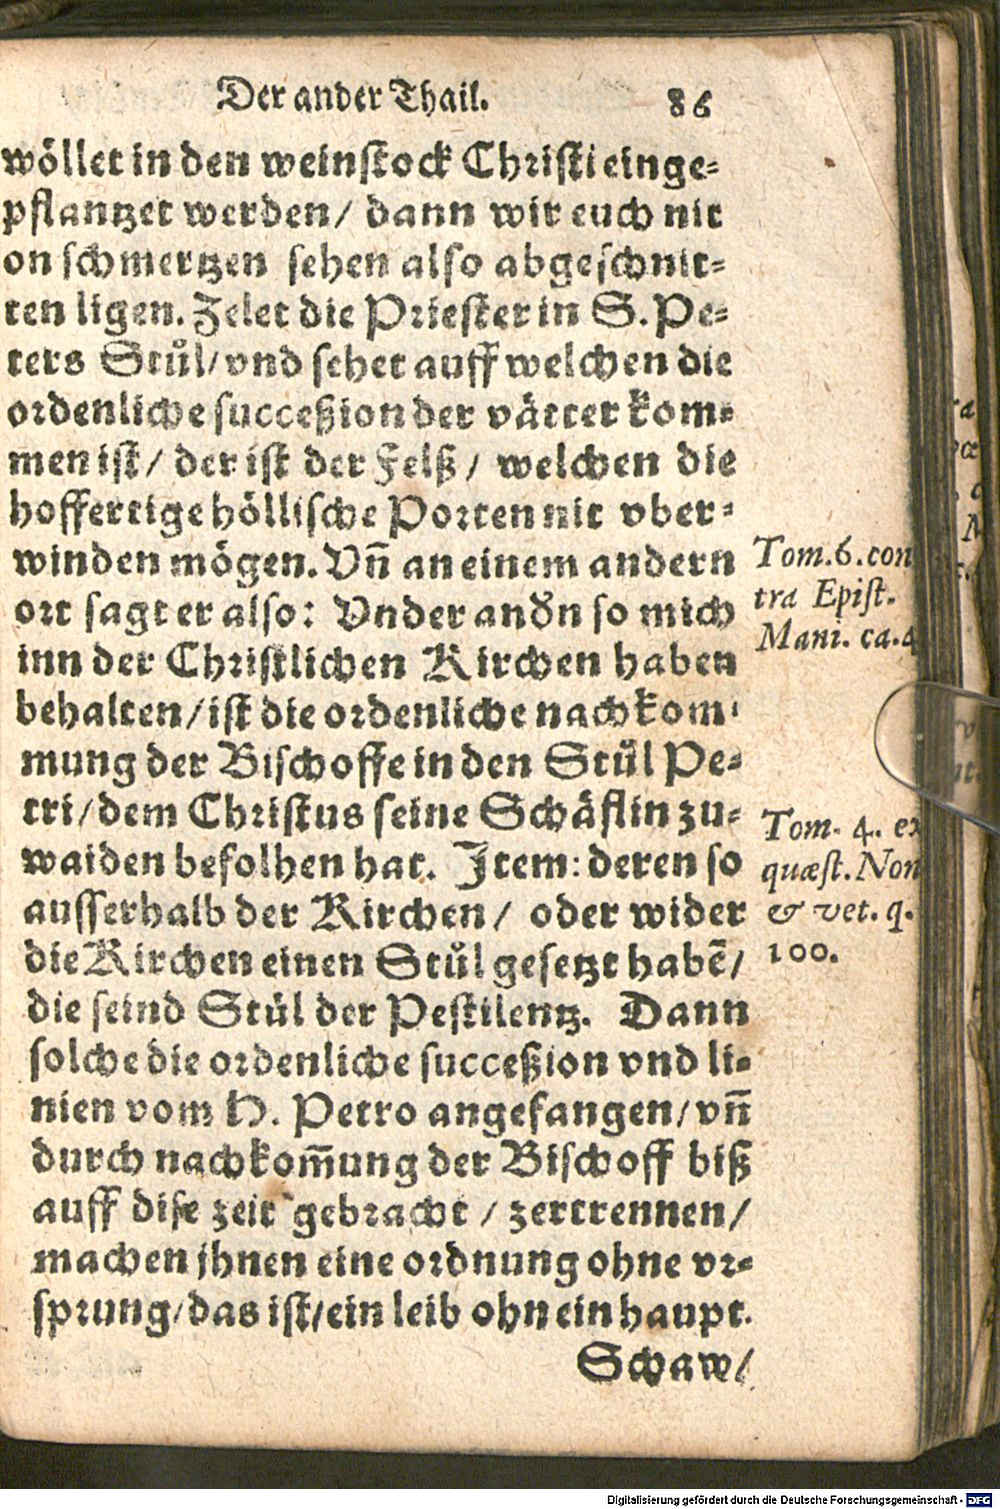 Der ander Thail. 86
wöllet in den weinstock Christi einge-
pflantzet werden/ dann wir euch nit
on schmertzen sehen also abgeschnit-
ten ligen. Zelet die Priester in S. Pe-
ters Stůl/ vnd sehet auff welchen die
ordenliche succeßion der vätter kom-
men ist/ der ist der Felß/ welchen die
hoffertige höllische Porten nit vber-
winden mögen. Vñ an einem andern
ort sagt er also: Vnder andn so mich
inn der Christlichen Kirchen haben
behalten/ ist die ordenliche nachkom-
mung der Bischoffe in den Stůl Pe-
tri/ dem Christus seine Schäflin zu-
waiden befolhen hat. Item: deren so
ausserhalb der Kirchen/ oder wider
die Kirchen einen Stůl gesetzt habē/
die seind Stůl der Pestilentz. Dann
solche die ordenliche succeßion vnd li-
nien vom H. Petro angefangen/ vñ
durch nachkom̄ung der Bischoff biß
auff dise zeit gebracht/ zertrennen/
machen jhnen eine ordnung ohne vr-
sprung/ das ist/ ein leib ohn ein haupt.
Schaw/
Tom. 6. con
tra Epist.
Mani. ca. 4
Tom. 4. ex
quæst. Non
& vet. q.
100.
Digitalisierung gefördert durch die Deutsche Forschungsgemeinschaft - DFG